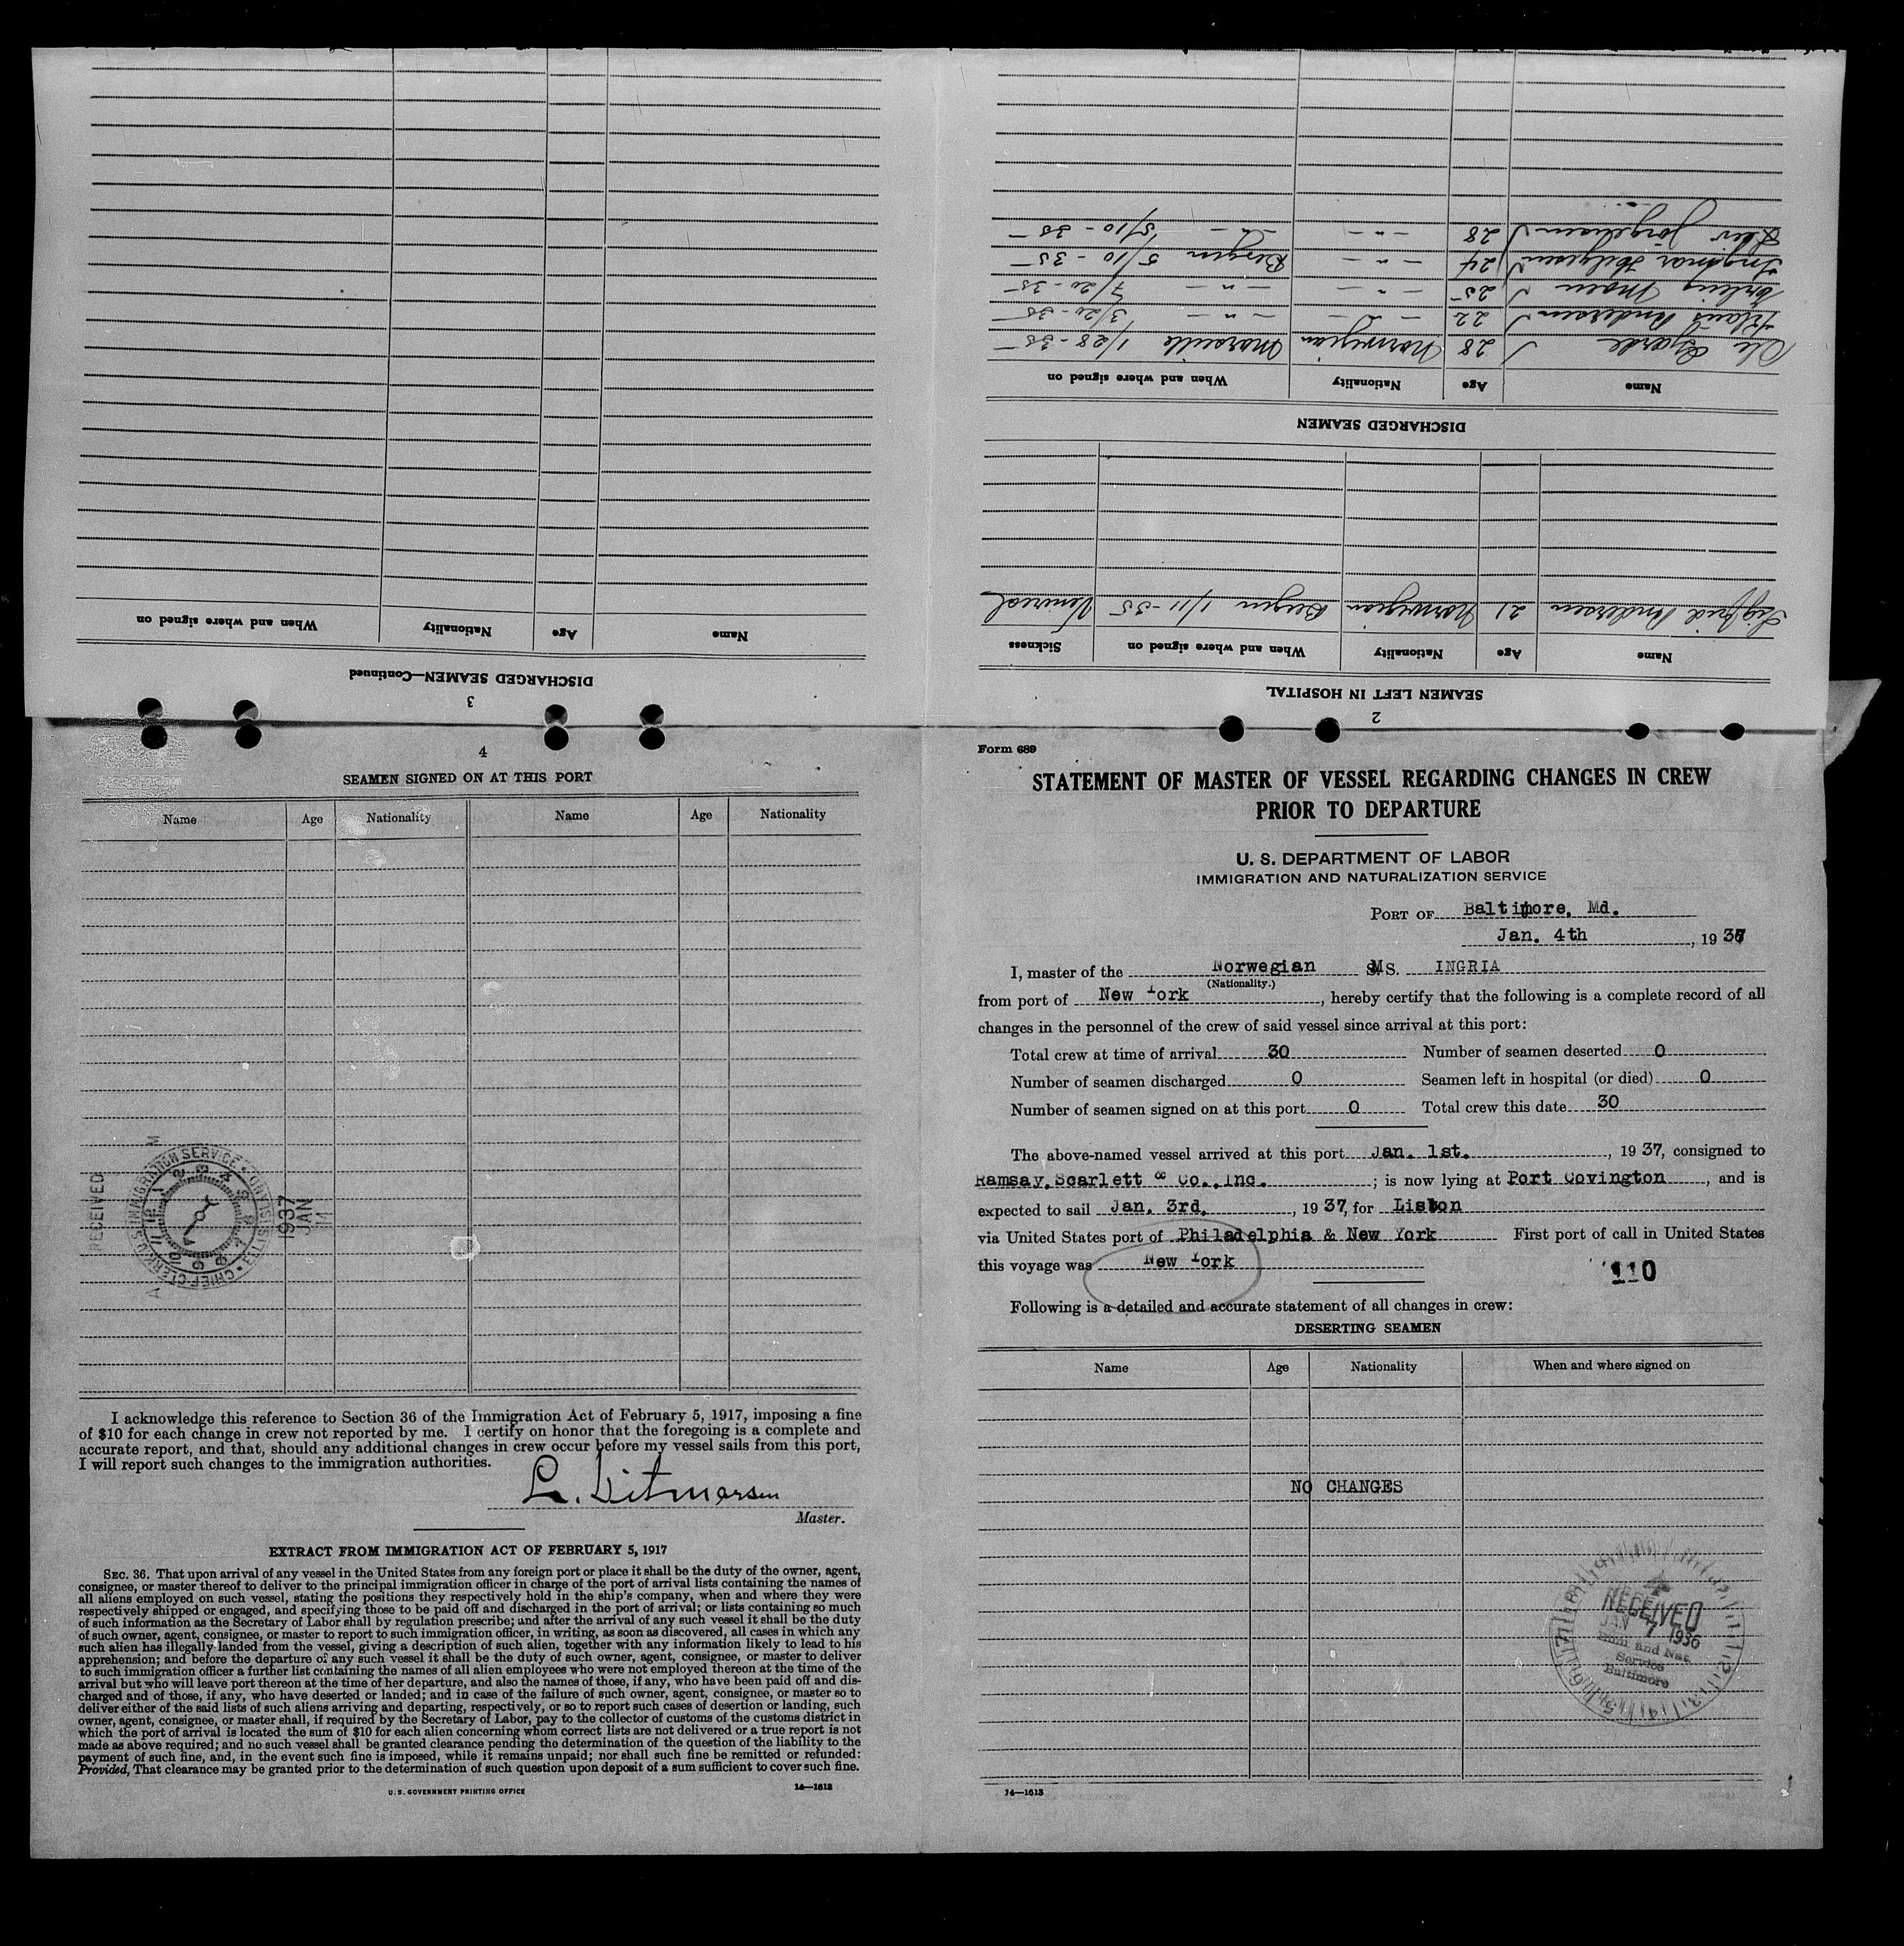 3
DISCHARGED SEAMEN—Continued
Name Age Nationality When and where signed on
2
SEAMEN LEFT IN HOSPITAL
Name Age Nationality When and where signed on Sickness
Sigfrid Andersen 21 Norwegian Bergen 1/11-35 Venereal
DISCHARGED SEAMEN
Name Age Nationality When and where signed on
Ole 28 Norwegian Marseille 1/28-35
Klaus Andersen 22 —"— —"— 3/20-35
Erling Moen 25 —"— —"— 7/20-35
Ingmar Helgesen 24 —"— Bergen 5/10-35
Leiv 28 —"— —"— 5/10-35
4
SEAMEN SIGNED ON AT THIS PORT
Name Age Nationality Name Age Nationality
RECEIVED
U.S. IMMIGRATION SERVICE
CHIEF CLERK
1937
JAN
I acknowledge this reference to Section 36 of the Immigration Act of February 5, 1917, imposing a fine
of $10 for each change in crew not reported by me. I certify on honor that the foregoing is a complete and
accurate report, and that, should any additional changes in crew occur before my vessel sails from this port,
I will report such changes to the immigration authorities.
L. Ditmarsen
Master.
EXTRACT FROM IMMIGRATION ACT OF FEBRUARY 5, 1917
SEC. 36. That upon arrival of any vessel in the United States from any foreign port or place it shall be the duty of the owner, agent,
consignee, or master thereof to deliver to the principal immigration officer in charge of the port of arrival lists containing the names of
all aliens employed on such vessel, stating the positions they respectively hold in the ship's company, when and where they were
respectively shipped or engaged, and specifying those to be paid off and discharged in the port of arrival; or lists containing so much
of such information as the Secretary of Labor shall by regulation prescribe; and after the arrival of any such vessel it shall be the duty
of such owner, agent, consignee, or master to report to such immigration officer, in writing, as soon as discovered, all cases in which any
such alien has illegally landed from the vessel, giving a description of such alien, together with any information likely to lead to his
apprehension; and before the departure of any such vessel it shall be the duty of such owner, agent, consignee, or master to deliver
to such immigration officer a further list containing the names of all alien employees who were not employed thereon at the time of the
arrival but who will leave port thereon at the time of her departure, and also the names of those, if any, who have been paid off and dis-
charged and of those, if any, who have deserted or landed; and in case of the failure of such owner, agent, consignee, or master so to
deliver either of the said lists of such aliens arriving and departing, respectively, or so to report such cases of desertion or landing, such
owner, agent, consignee, or master shall, if required by the Secretary of Labor, pay to the collector of customs of the customs district in
which the port of arrival is located the sum of $10 for each alien concerning whom correct lists are not delivered or a true report is not
made as above required; and no such vessel shall be granted clearance pending the determination of the question of the liability to the
payment of such fine, and, in the event such fine is imposed, while it remains unpaid; nor shall such fine be remitted or refunded:
Provided, That clearance may be granted prior to the determination of such question upon deposit of a sum sufficient to cover such fine.
U. S. GOVERNMENT PRINTING OFFICE 14—1613
Form 689
STATEMENT OF MASTER OF VESSEL REGARDING CHANGES IN CREW
PRIOR TO DEPARTURE
U. S. DEPARTMENT OF LABOR
IMMIGRATION AND NATURALIZATION SERVICE
PORT OF Baltimore, Md.
Jan. 4th, 1937
I, master of the Norwegian M S. INGRIA
(Nationality.)
from port of New York, hereby certify that the following is a complete record of all
changes in the personnel of the crew of said vessel since arrival at this port:
Total crew at time of arrival 30 Number of seamen deserted 0
Number of seamen discharged 0 Seamen left in hospital (or died) 0
Number of seamen signed on at this port 0 Total crew this date 30
The above-named vessel arrived at this port Jan. 1st., 1937, consigned to
Ramsay, Scarlett & Co., Inc.; is now lying at Port Covington, and is
expected to sail Jan. 3rd., 1937, for Lisbon
via United States port of Philadelphia & New York First port of call in United States
this voyage was New York 110
Following is a detailed and accurate statement of all changes in crew:
DESERTING SEAMEN
Name Age Nationality When and where signed on
NO CHANGES
RECEIVED
JAN 7 1936
Imm. and Nat.
Service
Baltimore
14—1613